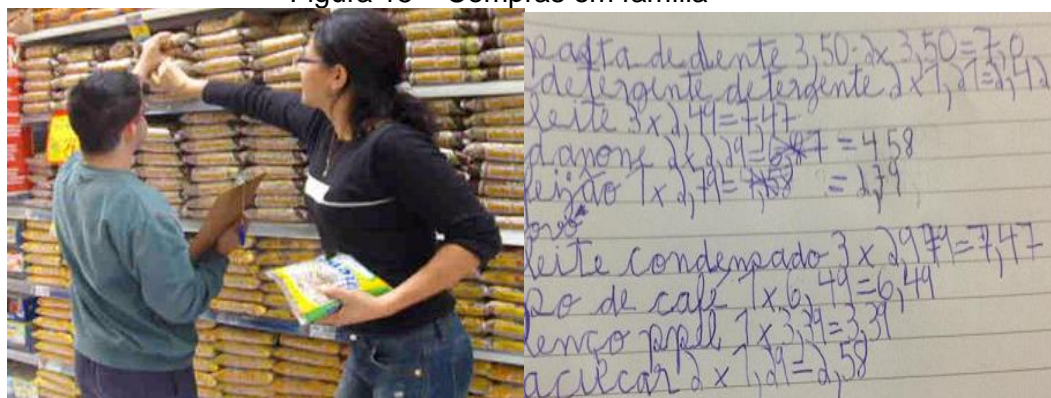 Figura 18 – Compras em família
pasta de dente 3,50 2x 3,50=7,0
detergente detergente 2x1,21=2,42
leite 3x2,49=7,47
danone 2x2,29= = 4,58
feijão 1x2,79= 4,58 = 2,79
ovo
leite condensado 3x2, =7,47
po de café 1x6,49=6,49
lenço papel 1x3,39=3,39
acucar 2x1,29=2,58